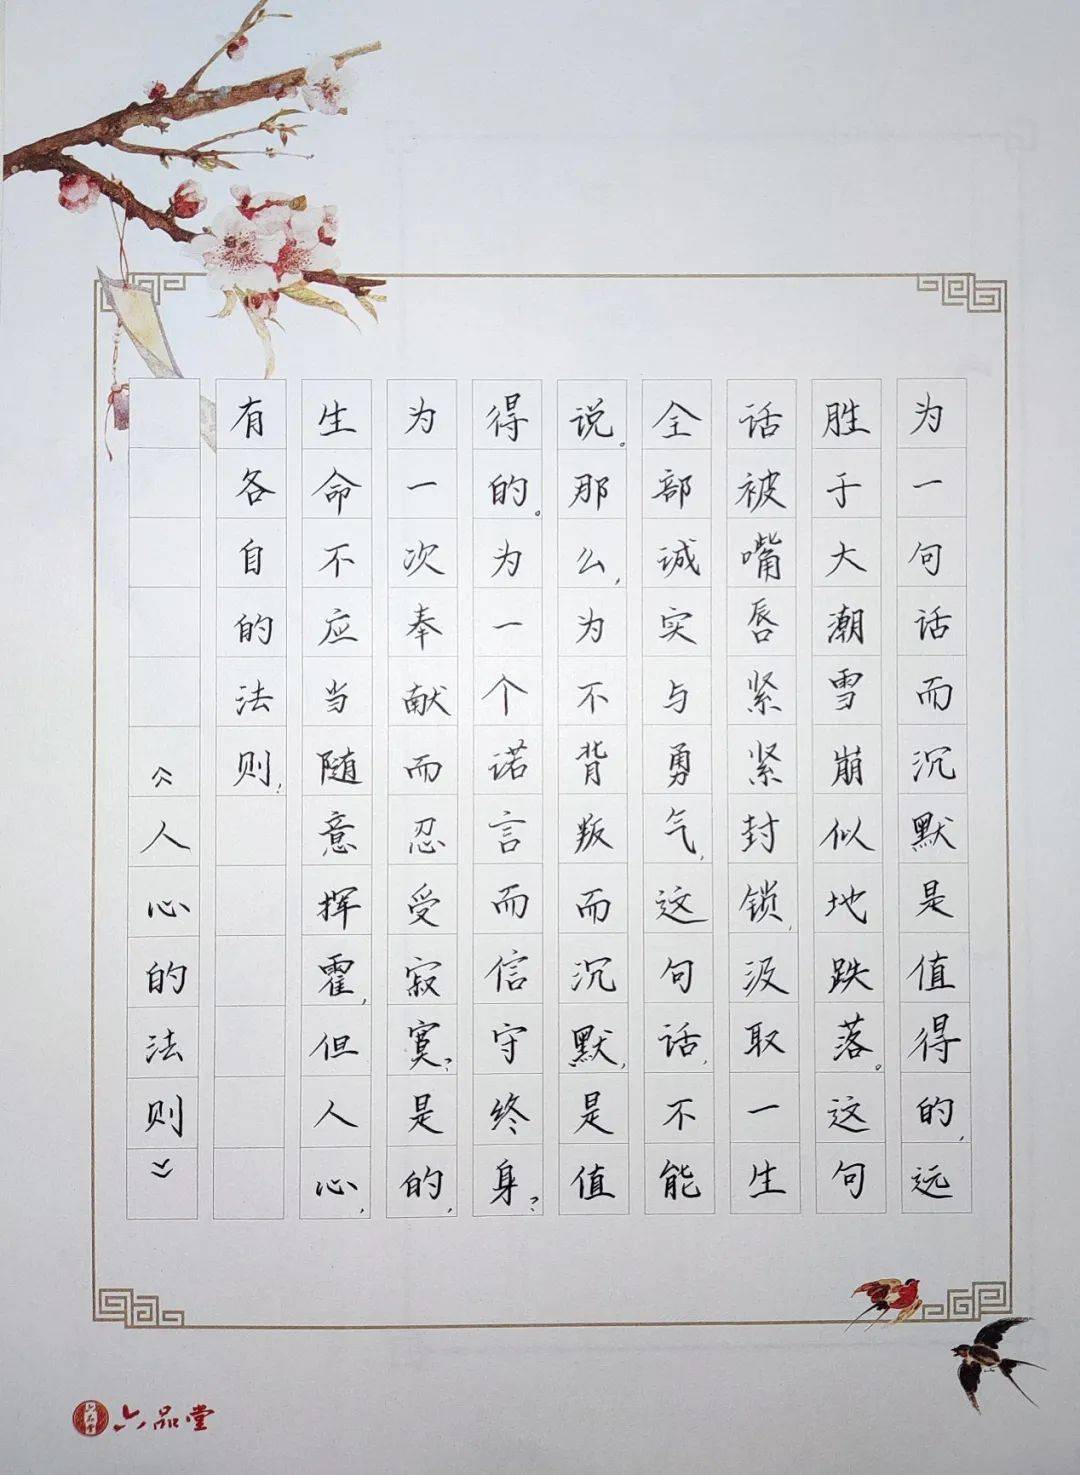 为一句话而沉默是值得的,远
胜于大潮雪崩似地跌落。这句
话被嘴唇紧紧封锁,汲取一生
全部诚实与勇气,这句话,不能
说。那么,为不背叛而沉默,是值
得的。为一个诺言而信守终身?
为一次奉献而忍受寂寞?是的,
生命不应当随意挥霍,但人心,
有各自的法则,
《人心的法则》
六品堂
六品堂